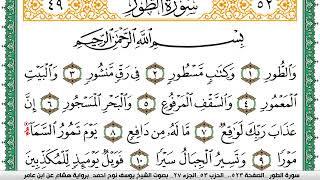 ٥٢ سُورَةُ الطُّورِ ٤٩
بِسْمِ اللَّهِ الرَّحْمَٰنِ الرَّحِيمِ
وَالطُّورِ ١ وَكِتَابٍ مَّسْطُورٍ ٢ فِي رَقٍّ مَّنشُورٍ ٣ وَالْبَيْتِ
الْمَعْمُورِ ٤ وَالسَّقْفِ الْمَرْفُوعِ ٥ وَالْبَحْرِ الْمَسْجُورِ ٦ إِنَّ
عَذَابَ رَبِّكَ لَوَاقِعٌ ٧ مَّا لَهُ مِن دَافِعٍ ٨ يَوْمَ تَمُورُ السَّمَاءُ
مَوْرًا ٩ وَتَسِيرُ الْجِبَالُ سَيْرًا ١٠ فَوَيْلٌ يَوْمَئِذٍ لِّلْمُكَذِّبِينَ
سورة الطور . الصفحة ٥٢٣ . الحزب ٥٣ . الجزء ٢٧ . بصوت الشيخ يوسف نوح احمد . برواية هشام عن ابن عامر